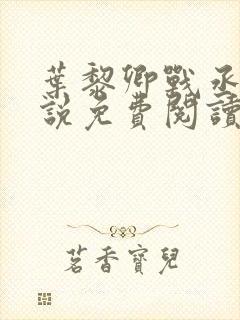 葉黎卿戰丞
說免費閱讀
茗香寶兒